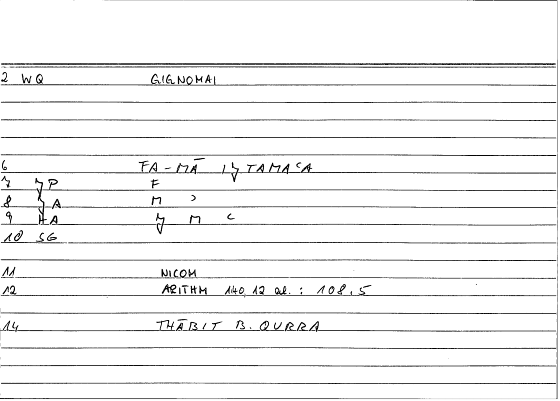 2 WQ GIGNOMAI
6 FA-MĀ IǦTAMAʿA
7 ǦP F
8 ǦA M ʾ
9 HA Ǧ M ʿ
10 SG
11 NICOM
12 ARITHM 140,12 al. : 108,5
14 THĀBIT B. QURRA